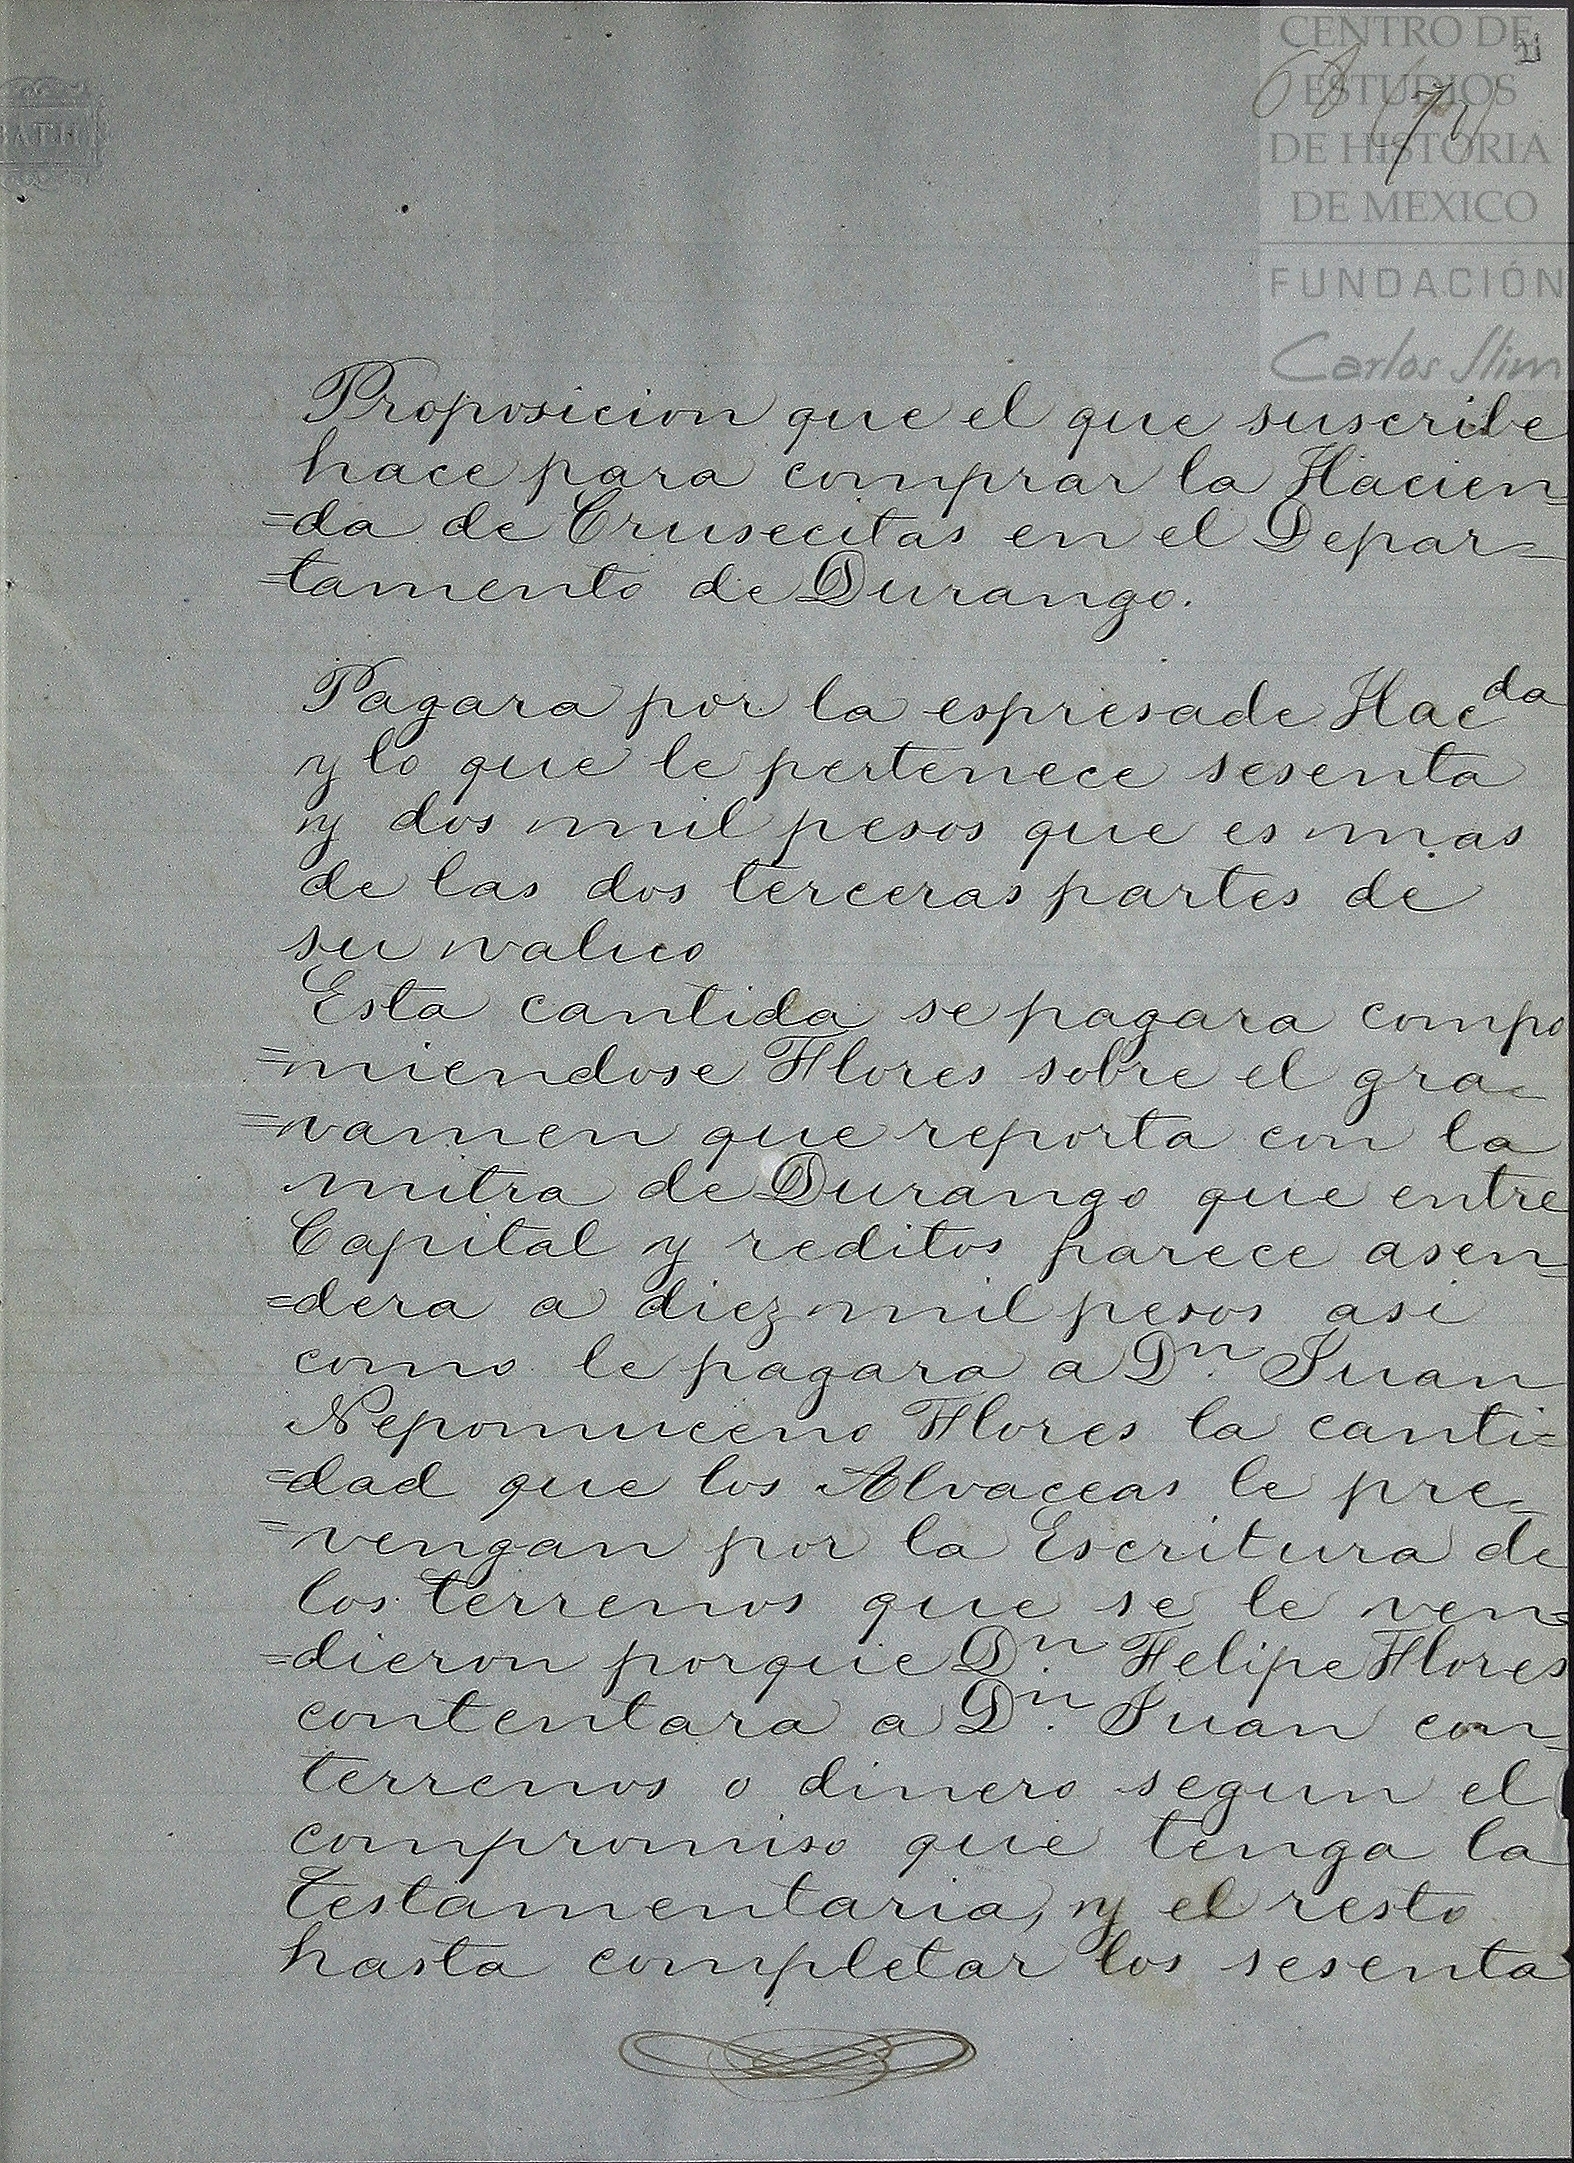 CENTRO DE
ESTUDIOS
DE HISTORIA
DE MEXICO
FUNDACIÓN
Carlos Slim
Proposicion que el que suscribe
hace para comprar la Hacien=
=da de Crusecitas en el Depar=
=tamento de Durango.
Pagara por la espresade Hac^da
y lo que le pertenece sesenta
y dos mil pesos que es mas
de las dos terceras partes de
su valuo
Esta cantida se pagara compo
=miendose Flores sobre el gra=
=vamen que reporta con la
mitra de Durango que entre
Capital y reditos parece asen=
=dera a diez mil pesos asi
como le pagara a D^n. Juan
Nepomuceno Flores la canti=
=dad que los Alvaceas le pre=
=vengan por la Escritura de
los terrenos que se le ven=
=dieron porque D^n. Felipe Flores
contentara a D^n. Juan con
terrenos o dinero segun el
compromiso que tenga la
Testamentaria, y el resto
hasta completar los sesenta